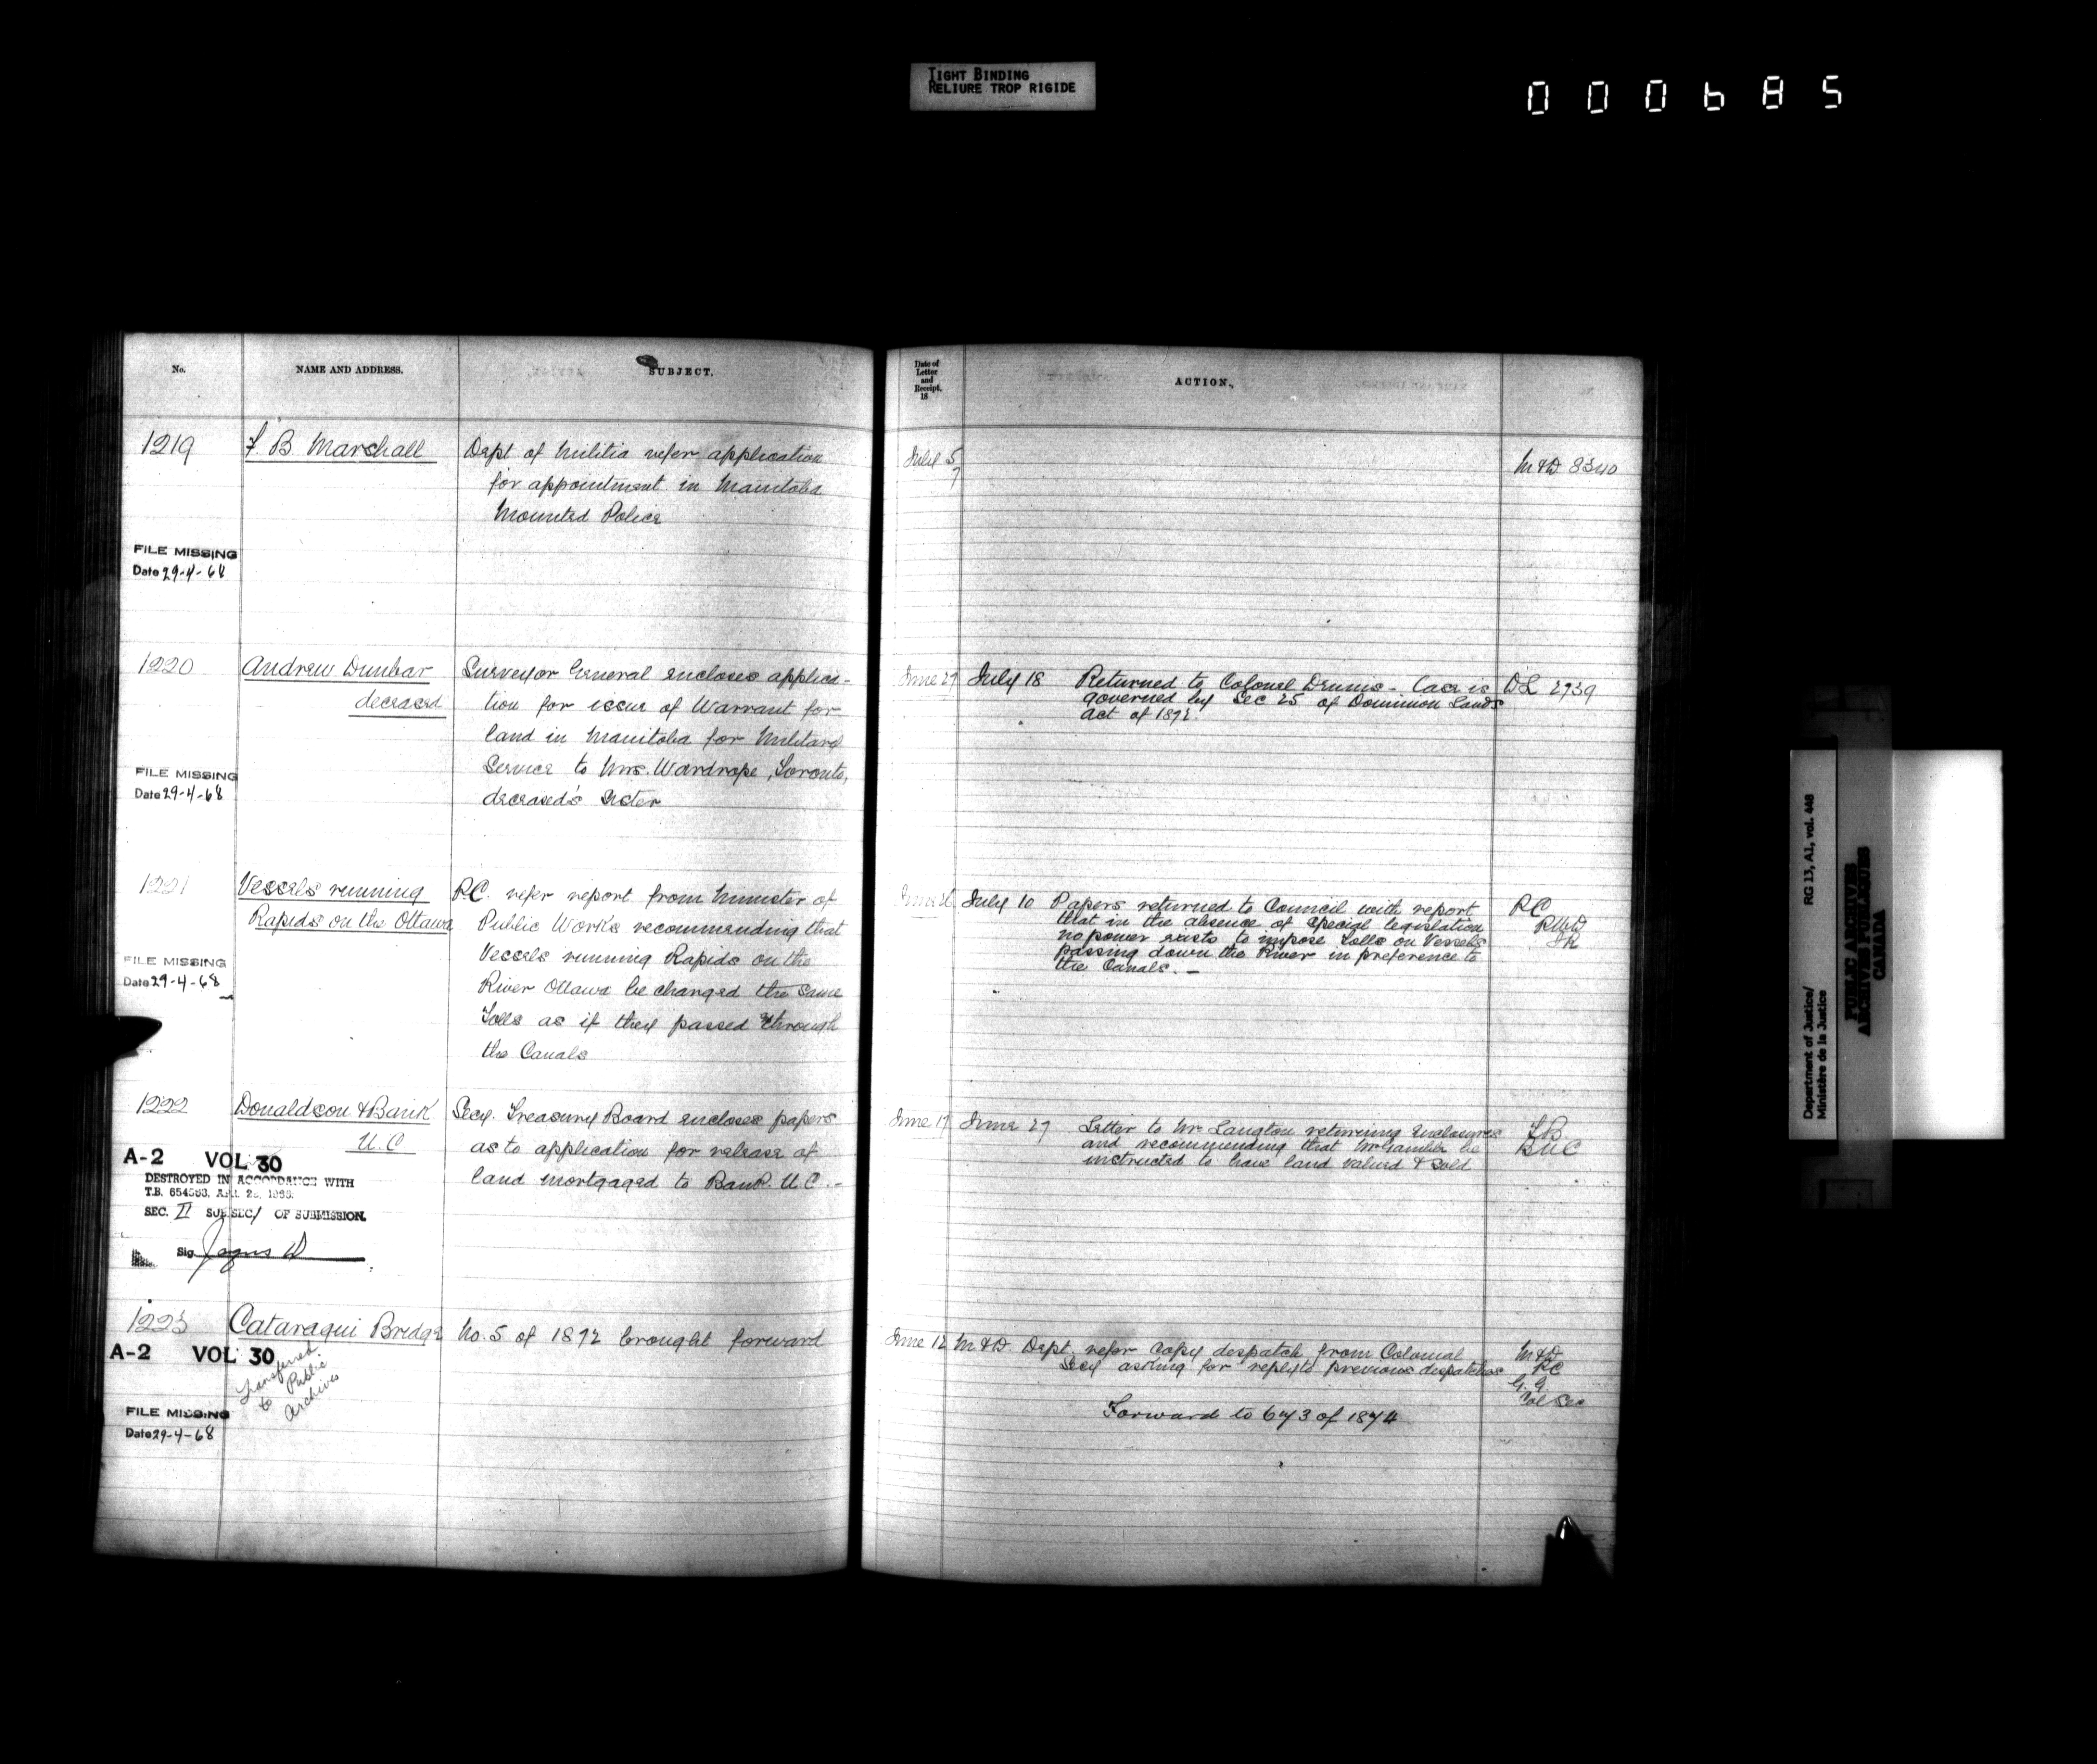 TIGHT BINDING
RELIURE TROP RIGIDE
000685
No.
NAME AND ADDRESS.
SUBJECT.
1219
J. B. Marshall
Dept of Militia refer application
for appointment in Manitoba
Mounted Police
FILE MISSING
Date 29-4-68
1220
Andrew Dunbar
deceased
Surveyor General encloses applica-
tion for issue of Warrant for
land in Manitoba for Military
Service to Mrs. Wardrope, Toronto,
deceased's Sister
FILE MISSING
Date 29-4-68
1221
Vessels running
Rapids on the Ottawa
P.C. refer report from Minister of
Public Works recommending that
Vessels running Rapids on the
River Ottawa be charged the same
Tolls as if they passed through
the Canals
FILE MISSING
Date 29-4-68
1222
Donaldson & Bank
U.C
Secy. Treasury Board encloses papers
as to application for release of
land mortgaged to Bank U.C.-
A-2 VOL 30
DESTROYED IN ACCORDANCE WITH
T.B. 654563,
SEC. II SUB SEC/ OF SUBMISSION.
Sig
1223
Cataraqui Bridge
No. 5 of 1872 brought forward
A-2 VOL 30
Transferred
to Public
Archives
FILE MISSING
Date 29-4-68
Date of
Letter
and
Receipt,
18
ACTION.
July 5
7
M&D 8340
June 27
July 18
Returned to Colonel Dennis - Case is
governed by Sec 25 of Dominion Lands
Act of 1872.
DL 2739
June
July 10
Papers returned to Council with report
that in the absence of special legislation
no power exists to impose Tolls on Vessels
passing down the River in preference to
the Canals. -
PC
June 17
June 27
Letter to Mr Langton returning enclosures
and recommending that Mr Gamble be
instructed to have land valued & sold
TB
BUC
June 12
M&D. Dept. refer Copy despatch from Colonial
Secy asking for reply to previous despatches
Forward to 673 of 1874
M&D
PC
G.G.
Col Sec
Department of Justice/
Ministère de la Justice
RG 13, A1, vol. 448
PUBLIC ARCHIVES
ARCHIVES PUBLIQUES
CANADA